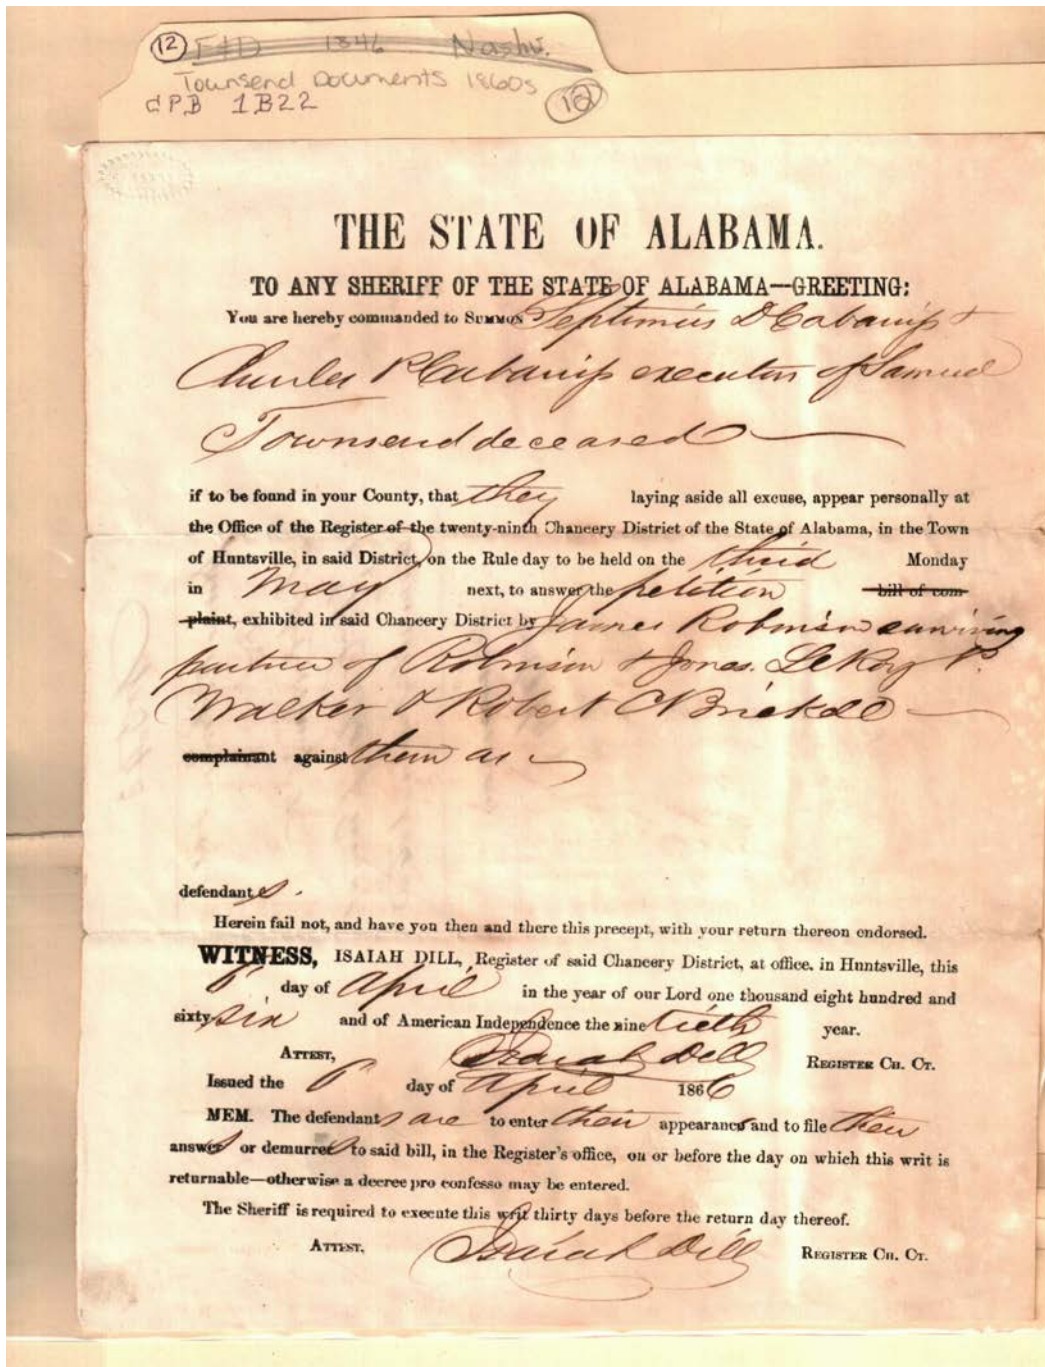 12 F+D 1846 Nashv.
Townsend Documents 1860s
CPB 1B22
12
THE STATE OF ALABAMA.
TO ANY SHERIFF OF THE STATE OF ALABAMA—GREETING:
You are hereby commanded to SUMMON Septimus D Cabaniss &
Charles P Cabaniss executors of Samuel
Townsend deceased
if to be found in your County, that they laying aside all excuse, appear personally at
the Office of the Register of the twenty-ninth Chancery District of the State of Alabama, in the Town
of Huntsville, in said District, on the Rule day to be held on the third Monday
in May next, to answer the petition bill of com-
plaint, exhibited in said Chancery District by James Robinson surviving
partner of Robinson & Jones. LeRoy P.
Walker & Robert C Brickell
complainant against them as
defendants.
Herein fail not, and have you then and there this precept, with your return thereon endorsed.
WITNESS, ISAIAH DILL, Register of said Chancery District, at office, in Huntsville, this
6 day of April in the year of our Lord one thousand eight hundred and
sixty six and of American Independence the ninetieth year.
ATTEST, Isaiah Dill REGISTER CH. CT.
Issued the 6 day of April 1866
MEM. The defendants are to enter their appearance and to file their
answer or demurrer to said bill, in the Register's office, on or before the day on which this writ is
returnable—otherwise a decree pro confesso may be entered.
The Sheriff is required to execute this writ thirty days before the return day thereof.
ATTEST, Isaiah Dill REGISTER CH. CT.